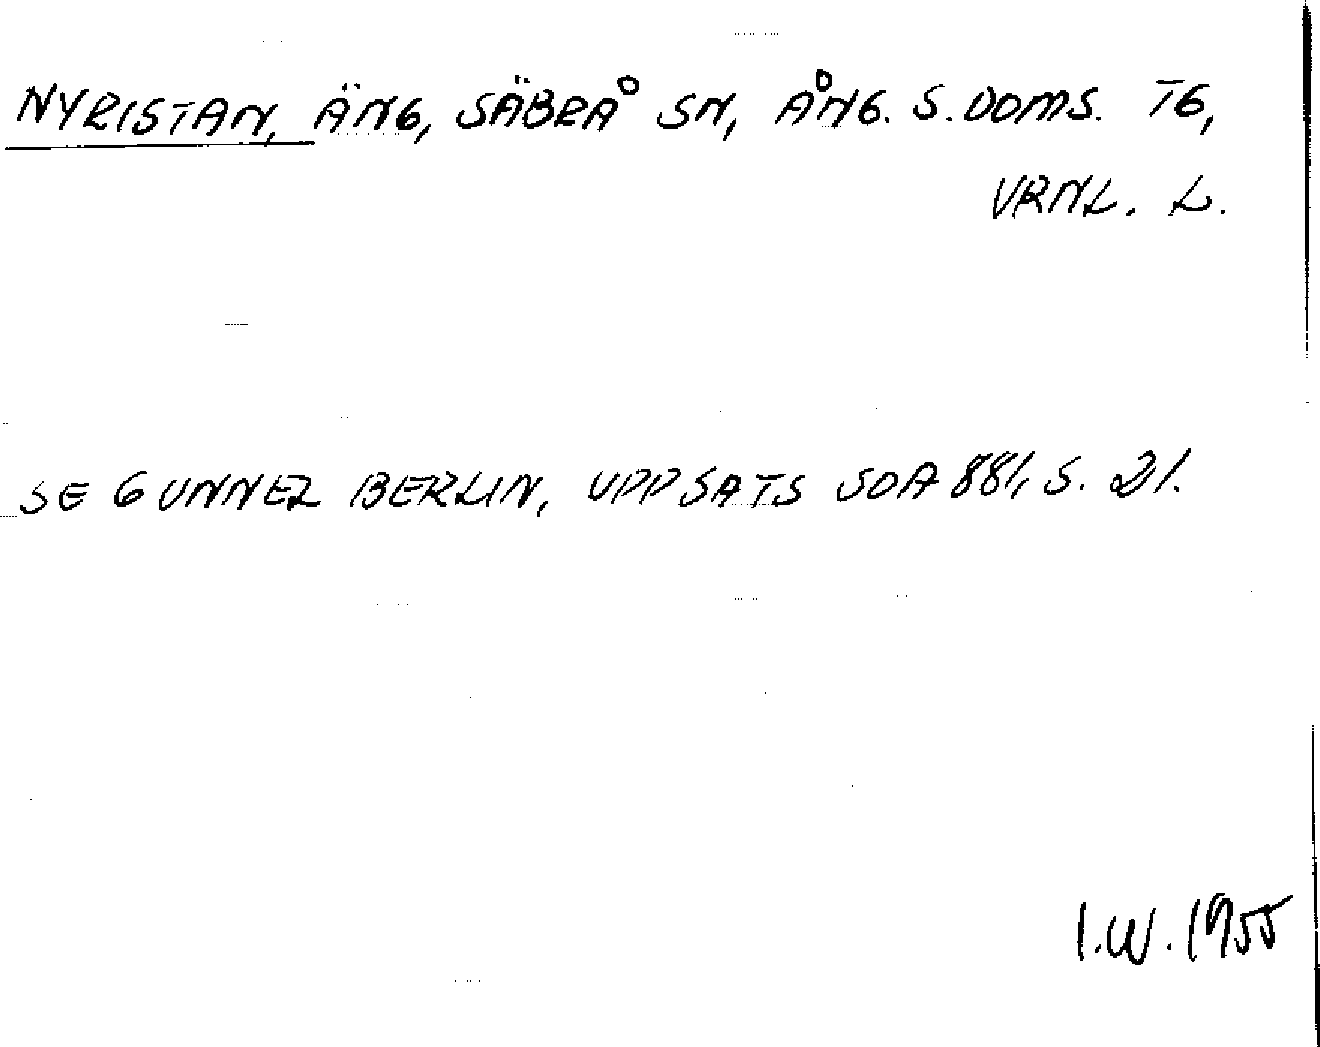 NYRISTAN, ÄNG, SÄBRÅ SN, ÅNG. S. DOMS. TG,
VRNL. L.
SE GUNNEL BERLIN, UPPSATS SOA 881, S. 21.
I.W. 1955